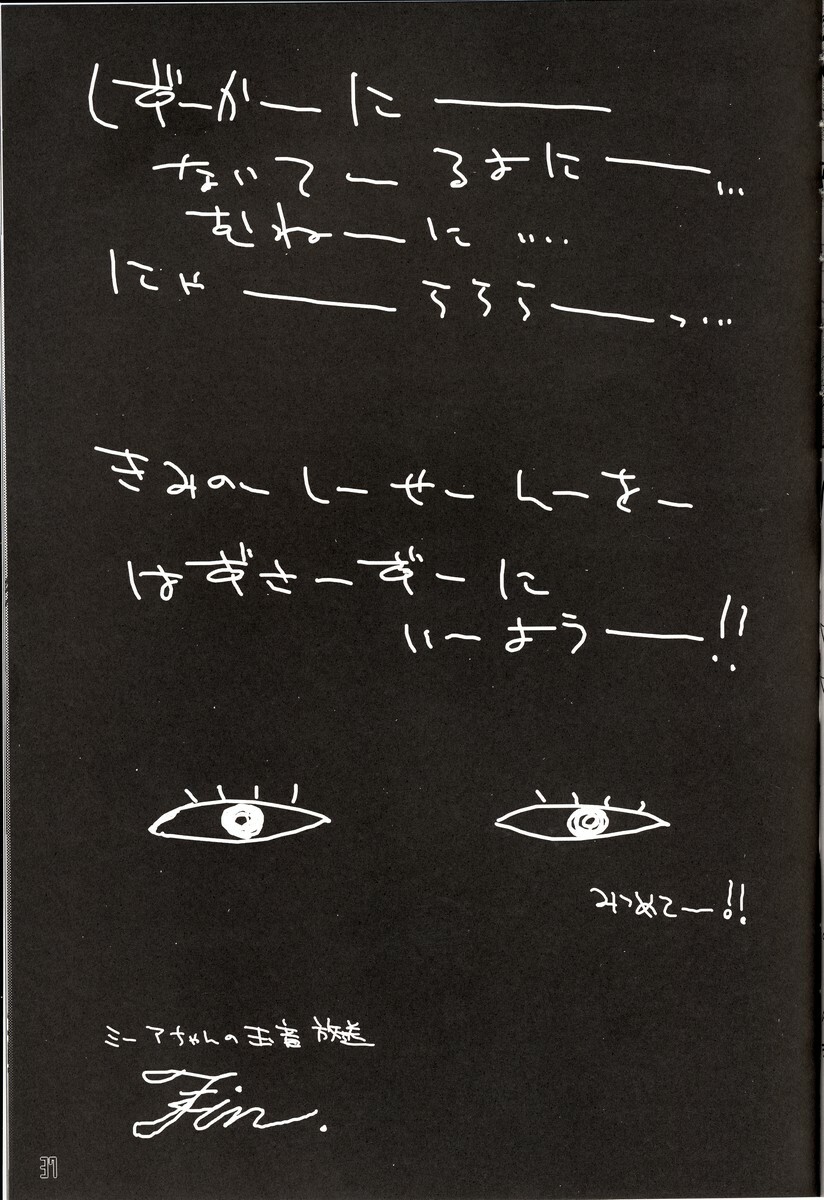 しずーがーにー
ないてーるよにー…
むねーに‥‥
にゃーろろろーっ…
きみのーしーせーんーをー
はずさーずーに
いーようー!!
みつめてー!!
ミーアちゃんの玉音放送
Fin.
37